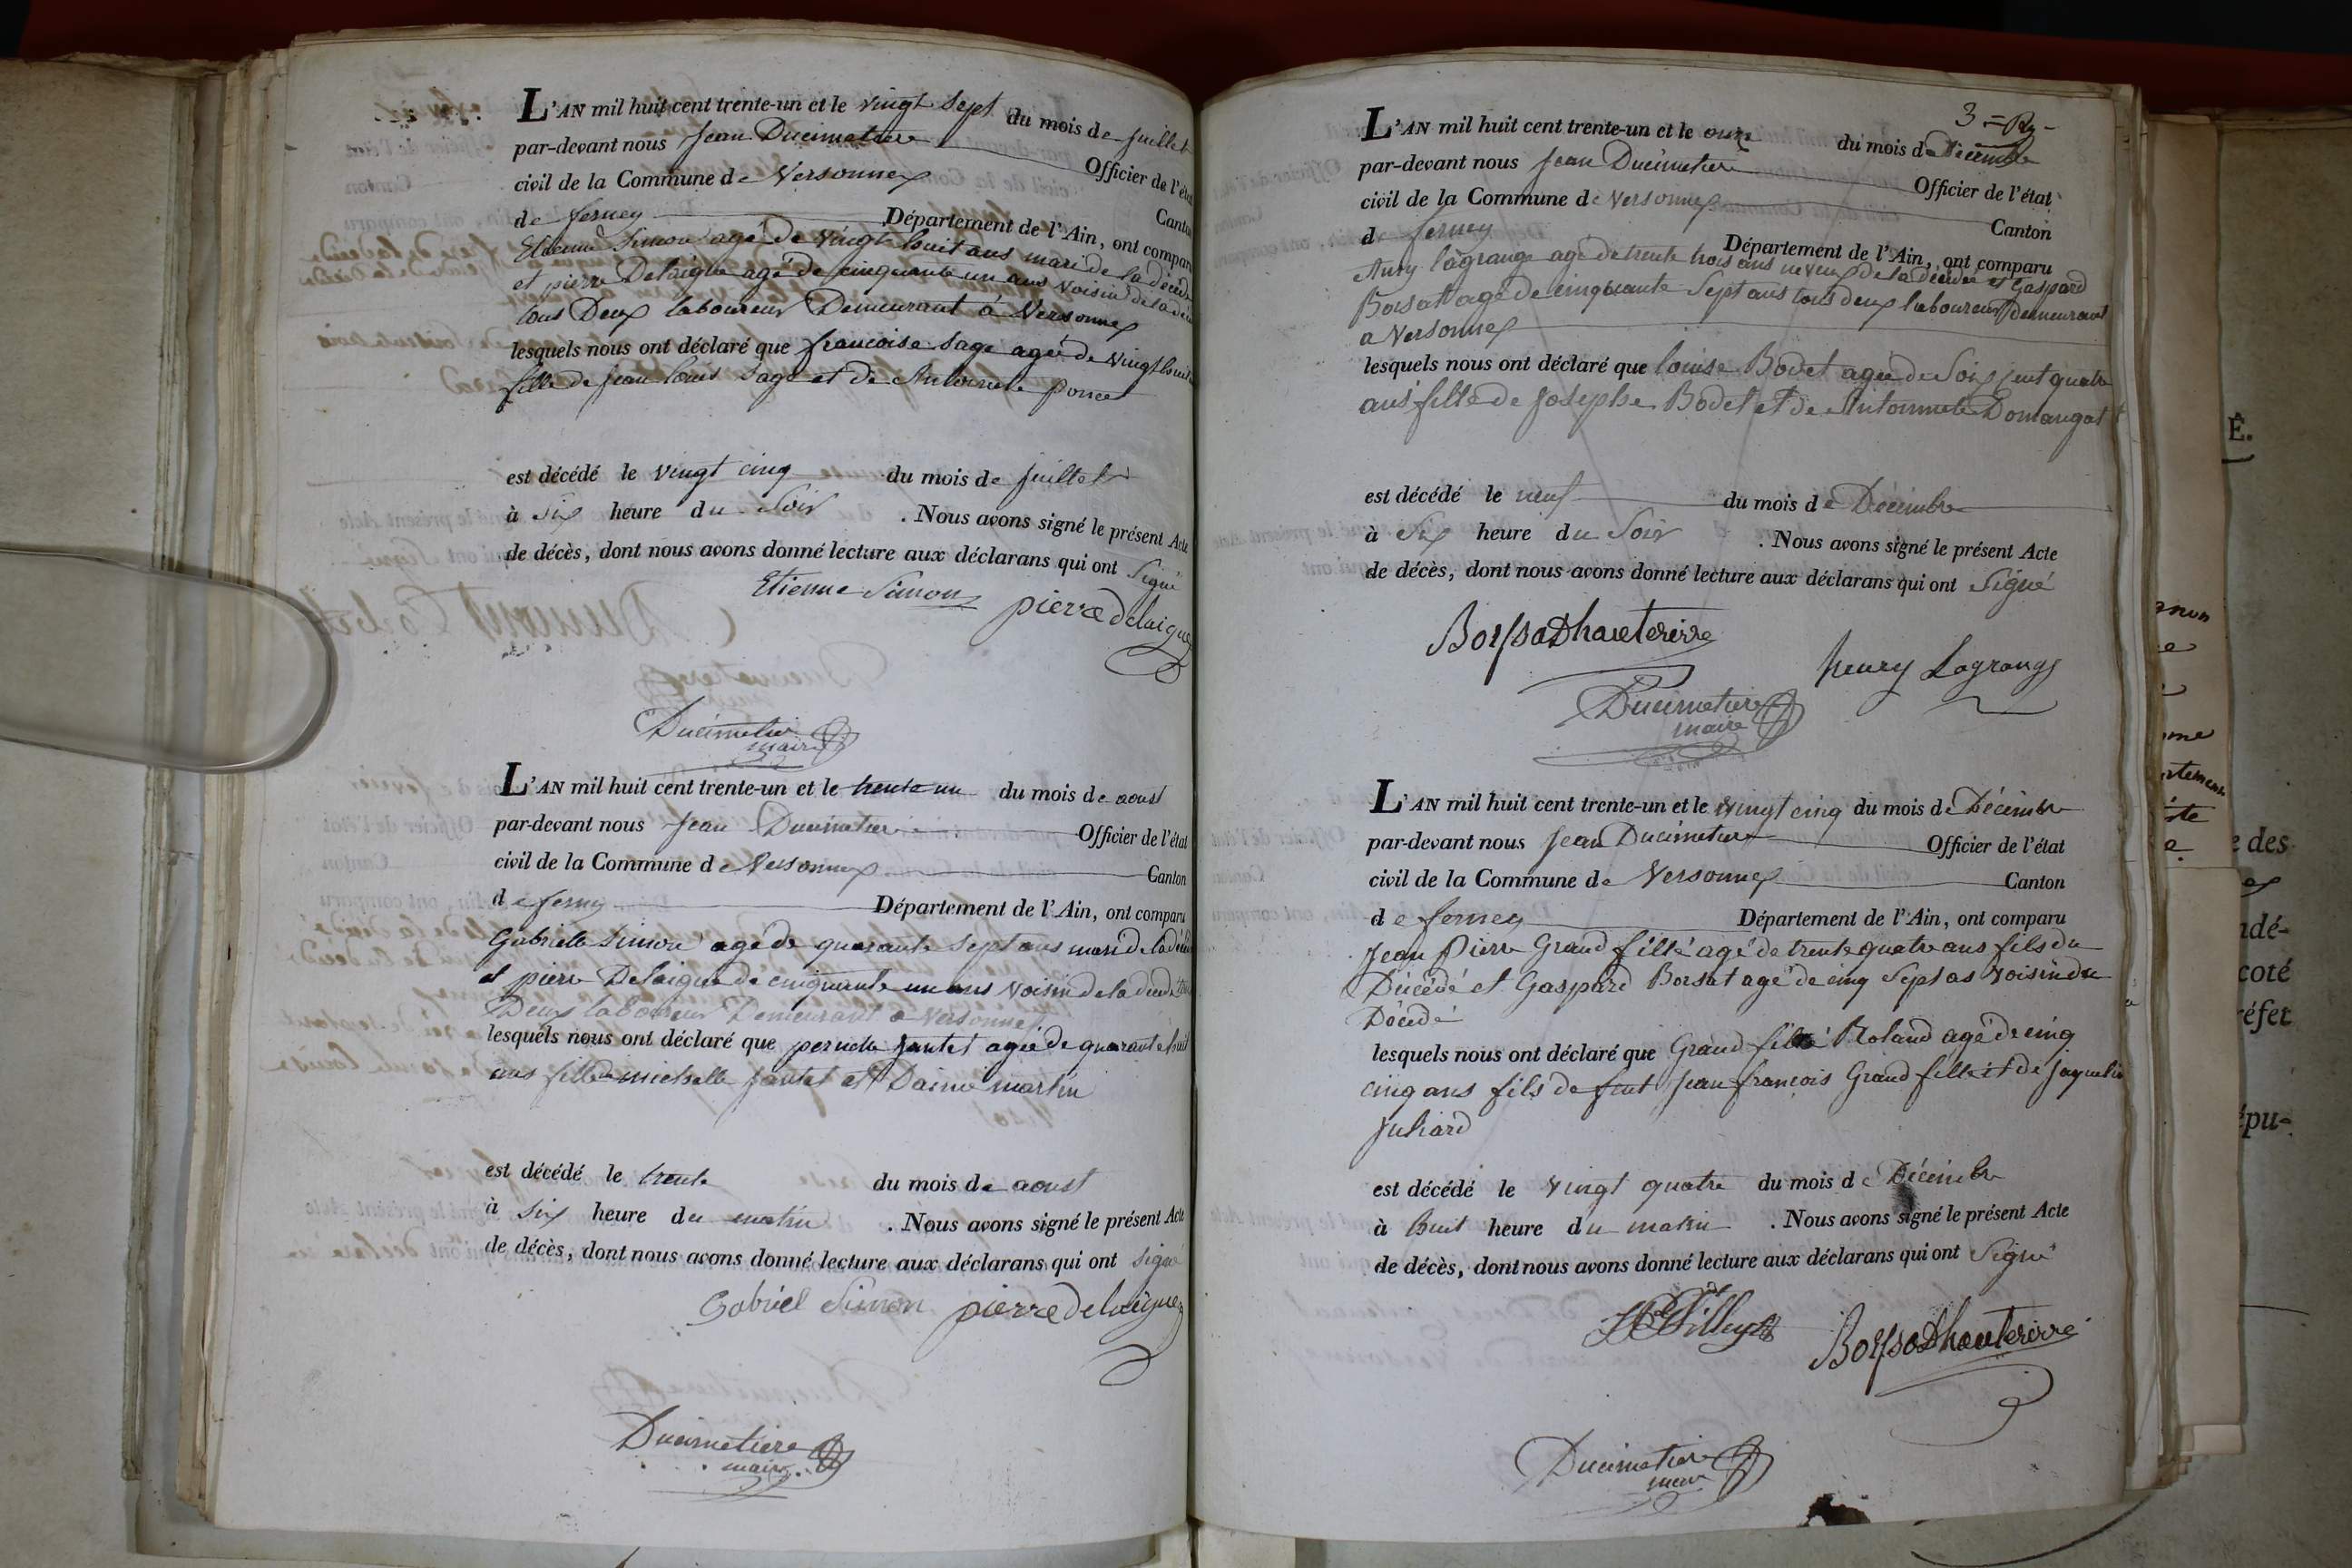 L'AN mil huit cent trente-un et le vingt sept du mois de juillet
par-devant nous Jean Ducimetiere Officier de l'état
civil de la Commune de Versonnex Canton
de ferney Département de l'Ain, ont comparu
Etienne Simon agé de vingt huit ans mari de la décédé
et pierre Delaigue agé de cinquante un ans voisin de la
tous Deux laboureur Demeurant à Versonnex
lesquels nous ont déclaré que francoise Sage agée de vingt huit
fille de Jean louis Sage et de Antoinete poncet
est décédé le vingt cinq du mois de juillet
à six heure du Soir . Nous avons signé le présent Acte
de décès, dont nous avons donné lecture aux déclarans qui ont Signé
Etienne Simon pierre Delaigue
Ducimetier
maire
L'AN mil huit cent trente-un et le trente un du mois de aoust
par-devant nous Jean Ducimetier Officier de l'état
civil de la Commune de Versonnex Canton
de ferney Département de l'Ain, ont comparu
Gabriele Simon agé de quarante Sept ans mari de la
et pierre Delaigue de cinquante un ans voisin de la
Deux laboureur Demeurant a Versonnex
lesquels nous ont déclaré que pernette jantet agée de quarante huit
ans fille michelle jantet et Daime martin
est décédé le trente du mois de aoust
à six heure du matin . Nous avons signé le présent Acte
de décès, dont nous avons donné lecture aux déclarans qui ont signé
Gabriel Simon pierre delaigue
Ducimetiere
maire
3
L'AN mil huit cent trente-un et le onze du mois de Décembre
par-devant nous Jean Ducimetier Officier de l'état
civil de la Commune de Versonnex Canton
d ferney Département de l'Ain, ont comparu
Anry lagrange agé de trente trois ans neveux de la décédée et Gaspard
Borsat agé de cinquante Sept ans tous deux laboureur demeurant
a Versonnex
lesquels nous ont déclaré que louise Bodet agée de Soix ent quatre
ans fille de Josephe Bodet et de Antoinnete Domangat
est décédé le neuf du mois de Décembre
à Six heure du Soir . Nous avons signé le présent Acte
de décès, dont nous avons donné lecture aux déclarans qui ont Signé
BorsaDhauterive
henry Lagrange
Ducimetiere
maire
L'AN mil huit cent trente-un et le vingt cinq du mois de Décembre
par-devant nous Jean Ducimetier Officier de l'état
civil de la Commune de Versonnex Canton
de ferney Département de l'Ain, ont comparu
Jean Pierre Grand fillé agé de trente quatre ans fils du
Décédé et Gaspard Borsat agé de cinq Sept as voisin du
Décédé
lesquels nous ont déclaré que Grand fillé Roland agé de cinq
cinq ans fils de feut Jean francois Grand fille et de jaqueline
Juliard
est décédé le vingt quatre du mois de Décembre
à huit heure du matin . Nous avons signé le présent Acte
de décès, dont nous avons donné lecture aux déclarans qui ont Signé
BorsaDhauterive
Ducimetiere
maire
E.
e des
ndé-
coté
éfet
épu-